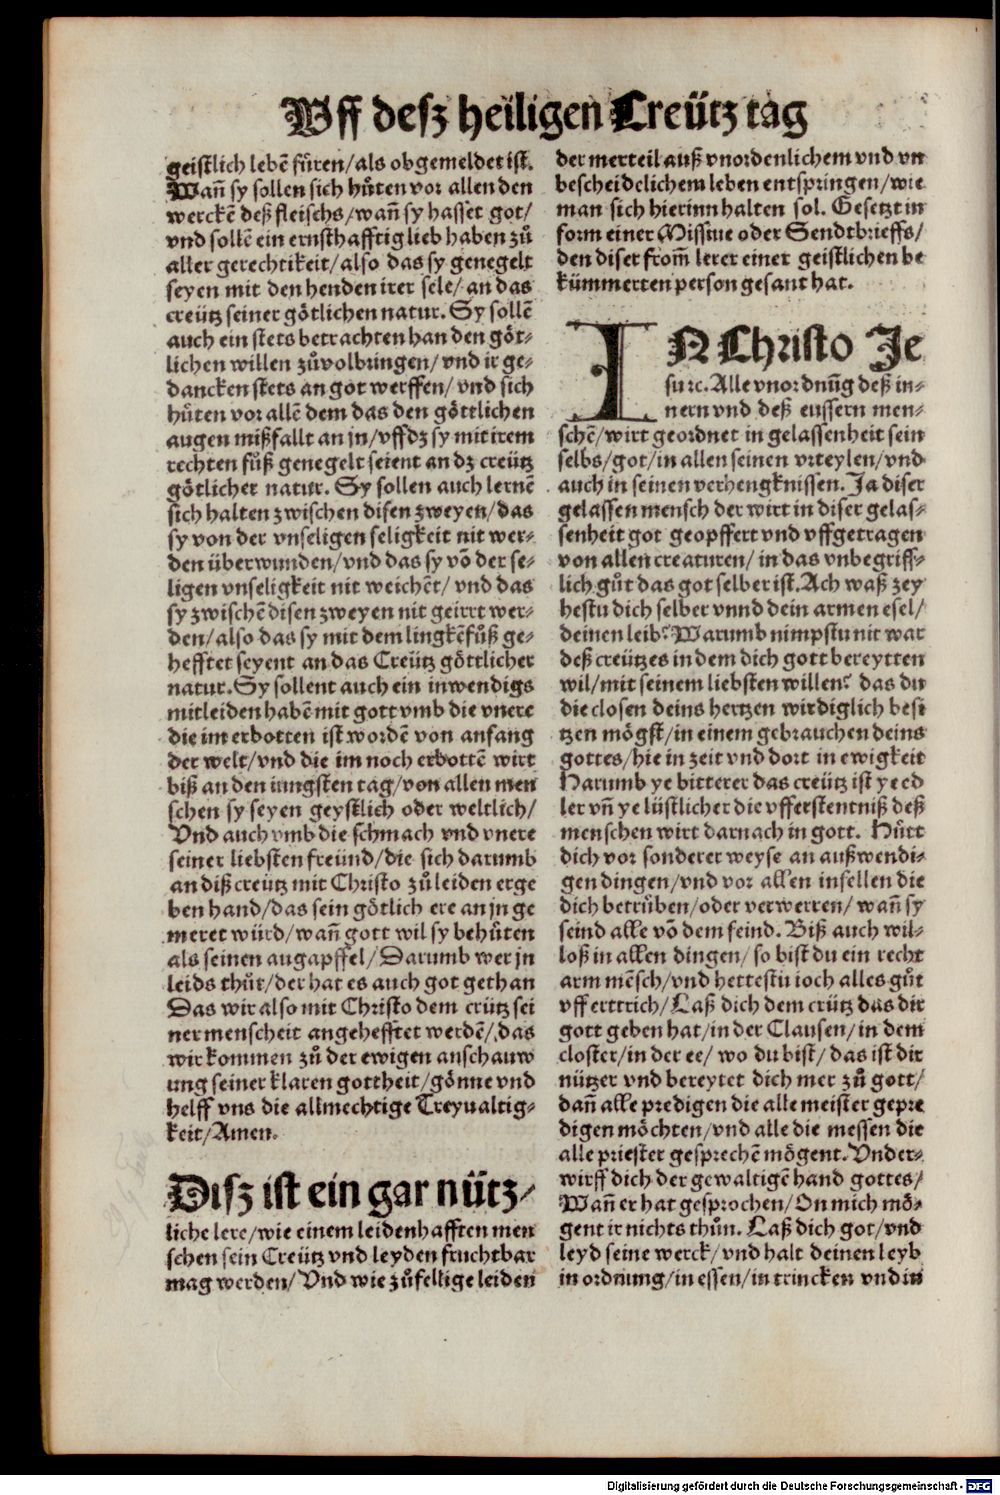 Vff desz heiligen Creütz tag
geistlich lebē füren/als obgemeldet ist.
Wañ sy sollen sich hůten vor allen den
werckē deß fleischs/wañ sy hasset got/
vnd sollē ein ernsthafftig lieb haben zů
aller gerechtikeit/also das sy genegelt
seyen mit den henden irer sele/an das
creütz seiner götlichen natur. Sy sollē
auch ein stets betrachten han den göt-
lichen willen zůvolbringen/vnd ir ge-
dancken stets an got werffen/vnd sich
hůten vor allē dem das den göttlichen
augen mißfallt an jn/vffdz sy mit irem
rechten fůß genegelt seient an dz creütz
götlicher natur. Sy sollen auch lernē
sich halten zwischen disen zweyen/das
sy von der vnseligen seligkeit nit wer-
den überwunden/vnd das sy vō der se-
ligen vnseligkeit nit weichēt/vnd das
sy zwischē disen zweyen nit geirrt wer-
den/also das sy mit dem lingkēfůß ge-
hefftet seyent an das Creütz göttlicher
natur. Sy sollent auch ein inwendigs
mitleiden habē mit gott vmb die vnere
die im erbotten ist wordē von anfang
der welt/vnd die im noch erbottē wirt
biß an den iungsten tag/von allen men
schen sy seyen geystlich oder weltlich/
Vnd auch vmb die schmach vnd vnere
seiner liebsten freünd/die sich darumb
an diß creütz mit Christo zůleiden erge
ben hand/das sein götlich ere an jn ge
meret würd/wañ gott wil sy behůten
als seinen augapffel/Darumb wer jn
leids thůt/der hat es auch got gethan
Das wir also mit Christo dem crütz sei
ner menscheit angehefftet werdē/das
wir kommen zů der ewigen anschauw
ung seiner klaren gottheit/gönne vnd
helff vns die allmechtige Treyualtig-
keit/Amen.
Disz ist ein gar nütz/
liche lere/wie einem leidenhafften men
schen sein Creütz vnd leyden fruchtbar
mag werden/Vnd wie zůfellige leiden
der merteil auß vnordenlichem vnd vn
bescheidelichem leben entspringen/wie
man sich hierinn halten sol. Gesetzt in
form einer Missiue oder Sendtbrieffs/
den diser from̄ lerer einer geistlichen be
kümmerten person gesant hat.
IN Christo Je
su ⁊c. Alle vnordnūg deß in-
nern vnd deß eussern men-
schē/wirt geordnet in gelassenheit sein
selbs/got/in allen seinen vrteylen/vnd
auch in seinen verhengknissen. Ja diser
gelassen mensch der wirt in diser gelas-
senheit got geopffert vnd vffgetragen
von allen creaturen/in das vnbegriff-
lich gůt das got selber ist. Ach waß zey
hestu dich selber vnnd dein armen esel/
deinen leib? Warumb nimpstu nit war
deß creützes in dem dich gott bereytten
wil/mit seinem liebsten willen? das du
die closen deins hertzen wirdiglich besi
tzen mögst/in einem gebrauchen deins
gottes/hie in zeit vnd dort in ewigkeit
Darumb ye bitterer das creütz ist ye ed
ler vñ ye lüstlicher die vfferstentniß deß
menschen wirt darnach in gott. Hůtt
dich vor sonderer weyse an außwendi-
gen dingen/vnd vor allen infellen die
dich betrüben/oder verwerren/wañ sy
seind alle vō dem feind. Biß auch wil-
loß in allen dingen/so bist du ein recht
arm mēsch/vnd hettestu ioch alles gůt
vff erttrich/Laß dich dem crütz das dir
gott geben hat/in der Clausen/in dem
closter/in der ee/wo du bist/das ist dir
nützer vnd bereytet dich mer zů gott/
dañ alle predigen die alle meister gepre
digen möchten/vnd alle die messen die
alle priester gesprechē mögent. Vnder-
wirff dich der gewaltigē hand gottes/
Wañ er hat gesprochen/On mich mö-
gent ir nichts thůn. Laß dich got/vnd
leyd seine werck/vnd halt deinen leyb
in ordnung/in essen/in trincken vnd in
Digitalisierung gefördert durch die Deutsche Forschungsgemeinschaft - DFG